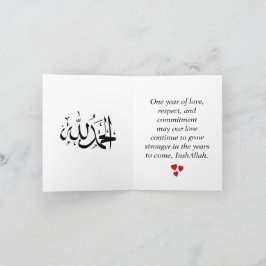 الحمد لله
One year of love,
respect, and
commitment
may our love
continue to grow
stronger in the years
to come, InshAllah.